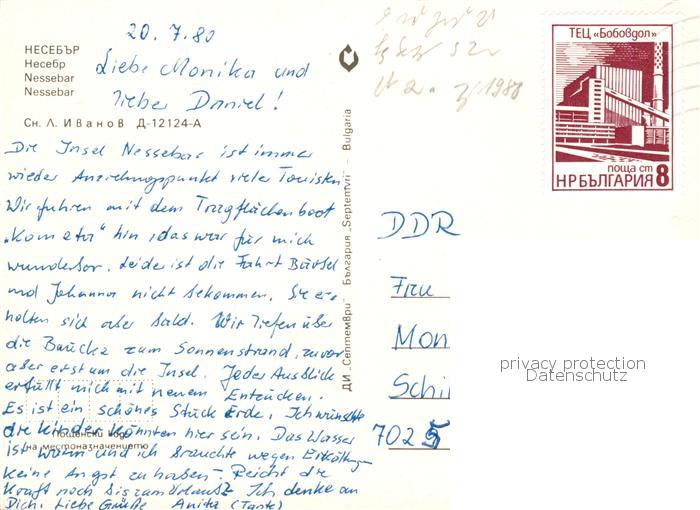 20.7.80
НЕСЕБЪР
Несебр
Nessebar
Nessebar
Liebe Monika und
lieber Daniel!
Сн. Л. Иванов Д-12124-А
Die Insel Nessebar ist immer
wieder Anziehungspunkt vieler Touristen
Wir fuhren mit dem Tragflächenboot
„Kometa" hin, das war für mich
wunderbar. Leider ist die Fahrt Bärbel
und Johanna nicht bekommen. Sie er-
holten sich aber bald. Wir liefen über
die Brücke zum Sonnenstrand, zuvor
aber erst um die Insel. Jeder Ausblick
erfüllt mich mit neuem Entzücken.
Es ist ein schönes Stück Erde. Ich wünschte
die Kinder könnten hier sein. Das Wasser
ist warm und ich brauchte wegen Erkältung
keine Angst zu haben. Reicht die
Kraft noch bis zum Urlaub? Ich denke an
Dich. Liebe Grüße Anita (Tante)
Пощенски код
на местоназначението
ДИ „Септември" България „Septemvri" – Bulgaria
1980
ТЕЦ «Бобовдол»
поща ст
НРБЪЛГАРИЯ 8
DDR
Frau
Mon
Schil
7025
privacy protection
Datenschutz